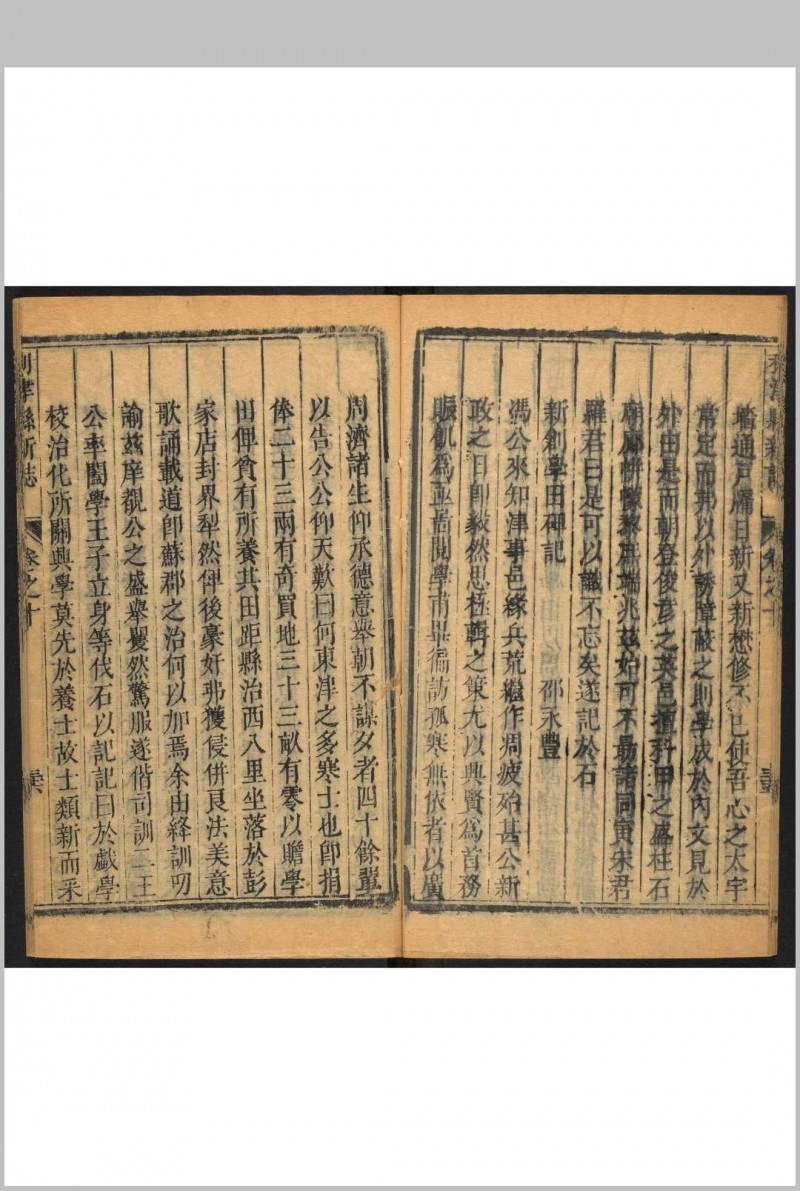 利津縣新志
卷之十
牆通戶牖日新又新懋修不已使吾心之太宇
常定而邦以外誘障蔽之則學成於內文見於
外由是而朝登俊彥之英邑擅科甲之盛柱石
廟廊帡幪黎庶端兆茲始可不勗諸同寅宋君
羅君曰是可以識不忘矣遂記於石
新創學田碑記 邵永豐
馮公來知津事邑緣兵荒繼作凋疲殆甚公新
政之日即毅然思拯輯之策尤以興賢爲首務
賑飢爲亟啚閱學甫畢徧訪孤寒無依者以廣
周濟諸生仰承德意舉朝不謀夕者四十餘輩
以告公公仰天歎曰何東津之多寒士也即捐
俸二十三兩有奇買地三十三畝有零以贍學
田俾貧有所養其田距縣治西八里坐落於彭
家店封界犁然俾後豪奸弗獲侵併良法美意
歌誦載道即蘇郡之治何以加焉余由絳訓叨
諭茲庠觀公之盛舉矍然驚服遂偕司訓二王
公率闔學王子立身等伐石以記記曰於戲學
校治化所關興學莫先於養士故士類新而釆
利津縣新志
卷之十